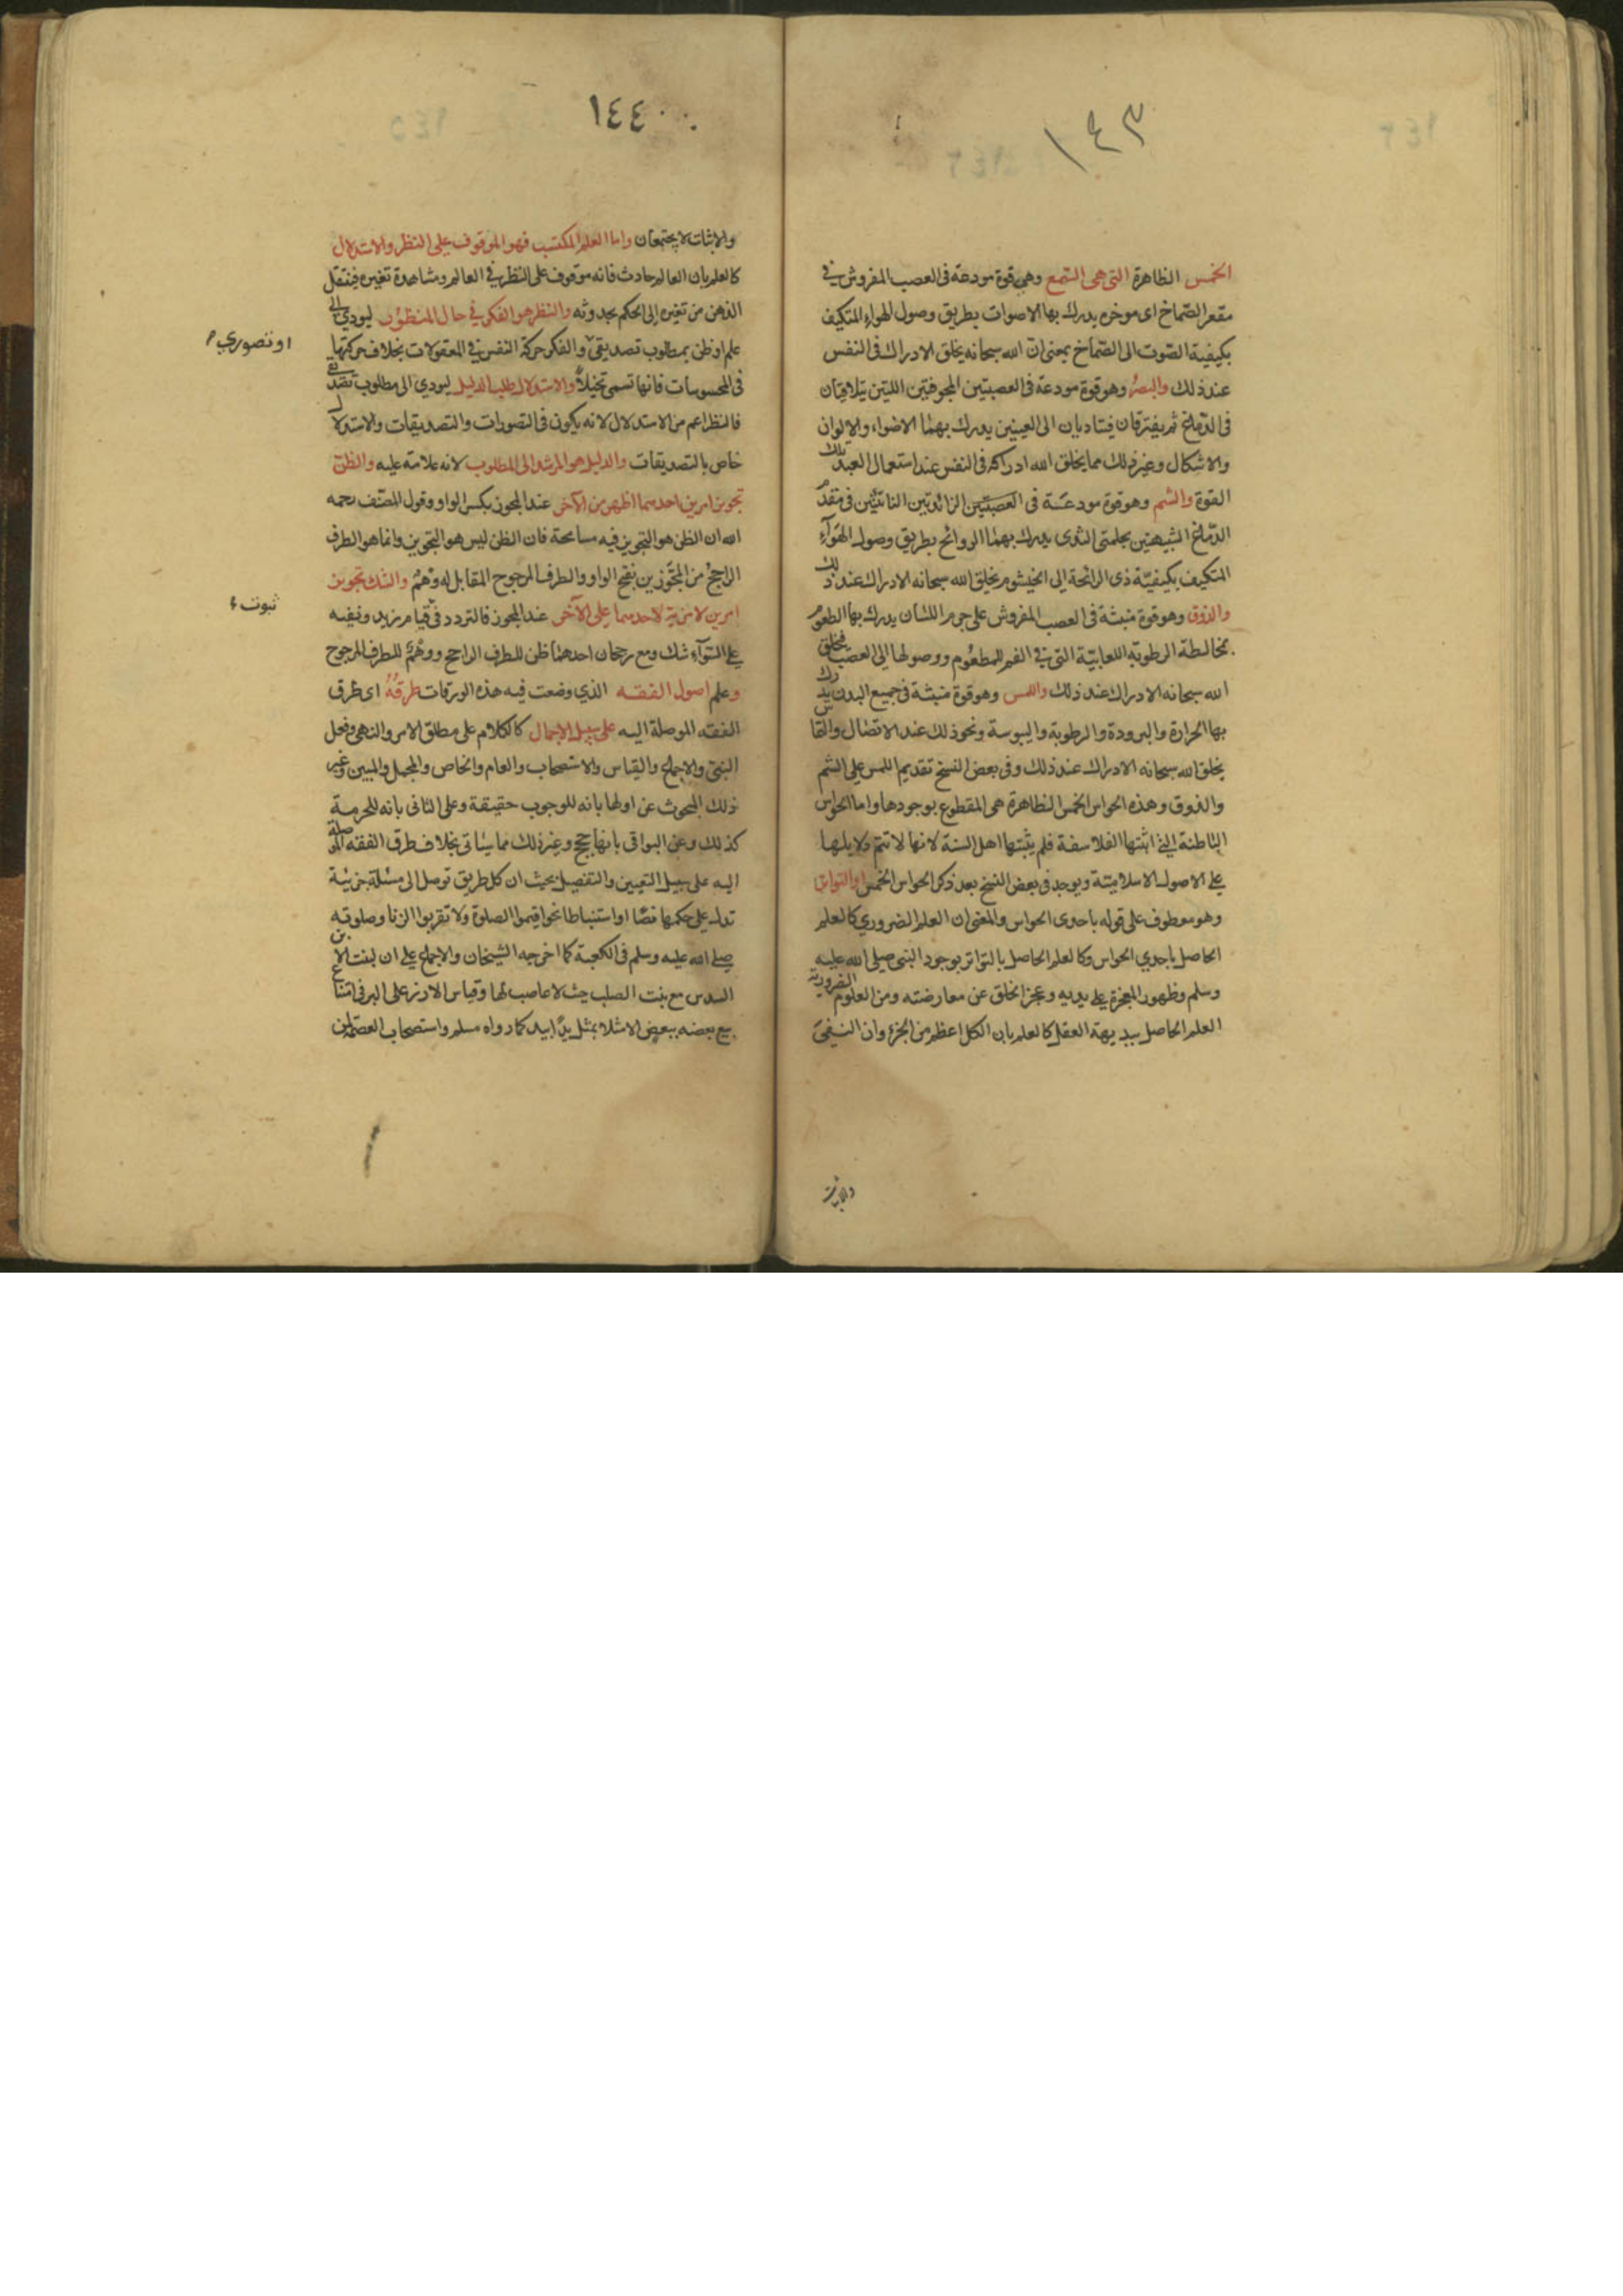 ١٤٣
الخمس الظاهرة التي هي السمع وهي قوة مودعة في العصب المفروش في
مقعر الصماخ اى موخره يدرك بها الاصوات بطريق وصول الهواء المتكيف
بكيفية الصوت الى الصماخ بمعنى انّ الله سبحانه يخلق الادراك فى النفس
عند ذلك والبصر وهو قوة مودعة فى العصبتين المجوفتين اللتين يتلاقيان
فى الدماغ ثم يفترقان فيتاديان الى العينين يدرك بهما الاضواء والالوان
والاشكال وغير ذلك مما يخلق الله ادراكه فى النفس عند استعمال العبد تلك
القوة والشم وهو قوة مودعة فى العصبتين الزائدتين الناتئتين فى مقدم
الدماغ الشبيهتين بحلمتى الثدى يدرك بهما الروائح بطريق وصول الهوآء
المتكيف بكيفيّة ذى الرائحة الى الخيشوم يخلق الله سبحانه الادراك عند ذلك
والذوق وهو قوة منبثة فى العصب المفروش على جرم اللسان يدرك بها الطعوم
بمخالطة الرطوبة اللعابيّة التى فى الفم للمطعوم ووصولها الى العصب فيخلق
الله سبحانه الادراك عند ذلك واللمس وهو قوة منبثة فى جميع البدن يدرك
بها الحرارة والبرودة والرطوبة واليبوسة ونحو ذلك عند الاتصال والتماس
يخلق الله سبحانه الادراك عند ذلك وفى بعض النسخ تقديم اللمس على الشم
والذوق وهذه الحواس الخمس الظاهرة هى المقطوع بوجودها واما الحواس
الباطنة التي اثبتها الفلاسفة فلم يثبتها اهل السنة لانها لا تتم دلايلها
على الاصول الاسلاميّة ويوجد فى بعض النسخ بعد ذكر الحواس الخمس او التواتر
وهو معطوف على قوله باحدى الحواس والمعنى ان العلم الضروري كالعلم
الحاصل باحدي الحواس وكالعلم الحاصل بالتواتر بوجود النبى صلى الله عليه
وسلم وظهور المعجزة على يديه وعجز الخلق عن معارضته ومن العلوم الضرورية
العلم الحاصل ببديهة العقل كالعلم بان الكل اعظم من الجزؤ وان النفي
والاثبات
١٤٤
والاثبات لا يجتمعان واما العلم المكتسب فهو الموقوف على النظر والاستدلال
كالعلم بان العالم حادث فانه موقوف على النظر فى العالم ومشاهدة تغيره فينتقل
الذهن من تغيره الى الحكم بحدوثه والنظر هو الفكر في حال المنظور ليودي الى
علم او ظن بمطلوب تصديقي والفكر حركة النفس في المعقولات بخلاف حركتها
او تصوري
فى المحسوسات فانها تسمى تخيلاً والاستدلال طلب الدليل ليودي الى مطلوب تصديقى
فالنظر اعم من الاستدلال لانه يكون فى التصورات والتصديقات والاستدلال
خاص بالتصديقات والدليل هو المرشد الى المطلوب لانه علامة عليه والظنّ
تجويز امرين احدهما اظهر من الآخر عند المجوز بكسر الواو وقول المصنف رحمه
الله ان الظن هو التجويز فيه مسامحة فان الظن ليس هو التجويز وانما هو الطرف
الراجح من المجوّزين بفتح الواو والطرف المرجوح المقابل له وَهْمٌ والشك تجويز
امرين لا مزية لاحدهما على الآخر عند المجوز فالتردد فى قيام زيد ونفيه
ثبوت
على السّوآء شك ومع رجحان احدهما ظن للطرف الراجح ووهم للطرف المرجوح
وعلم اصول الفقه الذي وضعت فيه هذه الورقات طرقهُ اى طرق
الفقه الموصلة اليه على سبيل الاجمال كالكلام على مطلق الامر والنهى وفعل
النبى والاجماع والقياس والاستصحاب والعام والخاص والمجمل والمبين وغير
ذلك المبحوث عن اولها بانه للوجوب حقيقة وعلى الثانى بانه للحرمة
كذلك وعن البواقى بانها حجج وغير ذلك مما سياتى بخلاف طرق الفقه الموصلة
اليه على سبيل التعيين والتفصيل بحيث ان كل طريق توصل الى مسئلة جزئية
تدل على حكمها نصًا او استنباطا نحو اقيموا الصلوة ولا تقربوا الزنا وصلوته
صلى الله عليه وسلم فى الكعبة كما اخرجه الشيخان والاجماع على ان لبنت الابن
السدس مع بنت الصلب حيث لا عاصب لها وقياس الارز على البر فى امتناع
بيع بعضه ببعض الا مثلا بمثل يدًا بيد كما رواه مسلم واستصحاب العصمة لمن